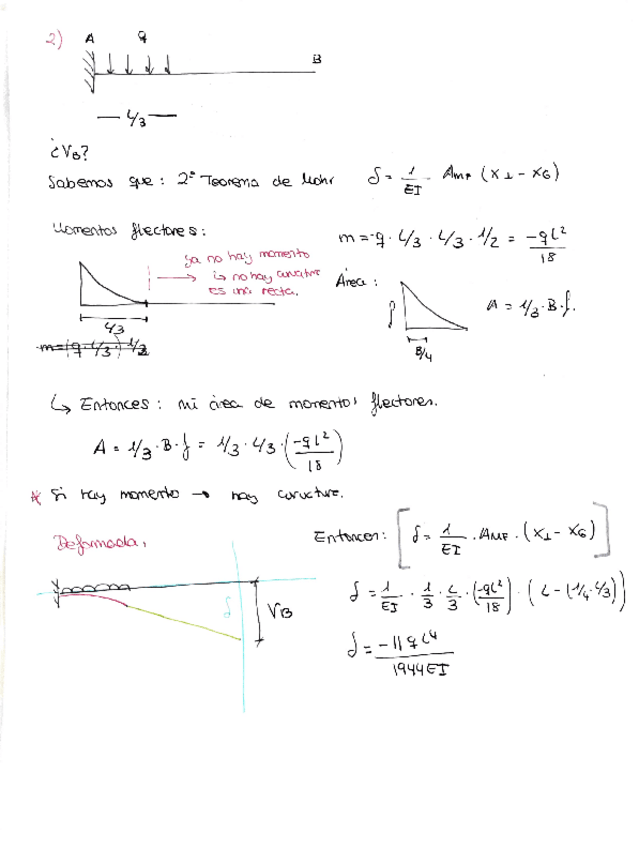 2) A q
B
L/3
¿VB?
Sabemos que: 2º Teorema de Mohr δ = 1/EI AMF (X⊥ - XG)
Momentos flectores: m = -q · L/3 · L/3 · 1/2 = -qL²/18
ya no hay momento
↳ no hay curvature
es una recta.
L/3
m=(q·L/3)·1/2
Área:
f
B/4
A = 1/3 · B · f.
↳ Entonces: mi área de momentos flectores.
A = 1/3 · B · f = 1/3 · L/3 · (-qL²/18)
* Si hay momento → hay curvature.
Deformada,
δ
VB
Entonces: [δ = 1/EI · AMF · (X⊥ - XG)]
δ = 1/EI · 1/3 · L/3 · (-qL²/18) · (L - (1/4 · L/3))
δ = -11qL⁴/1944EI